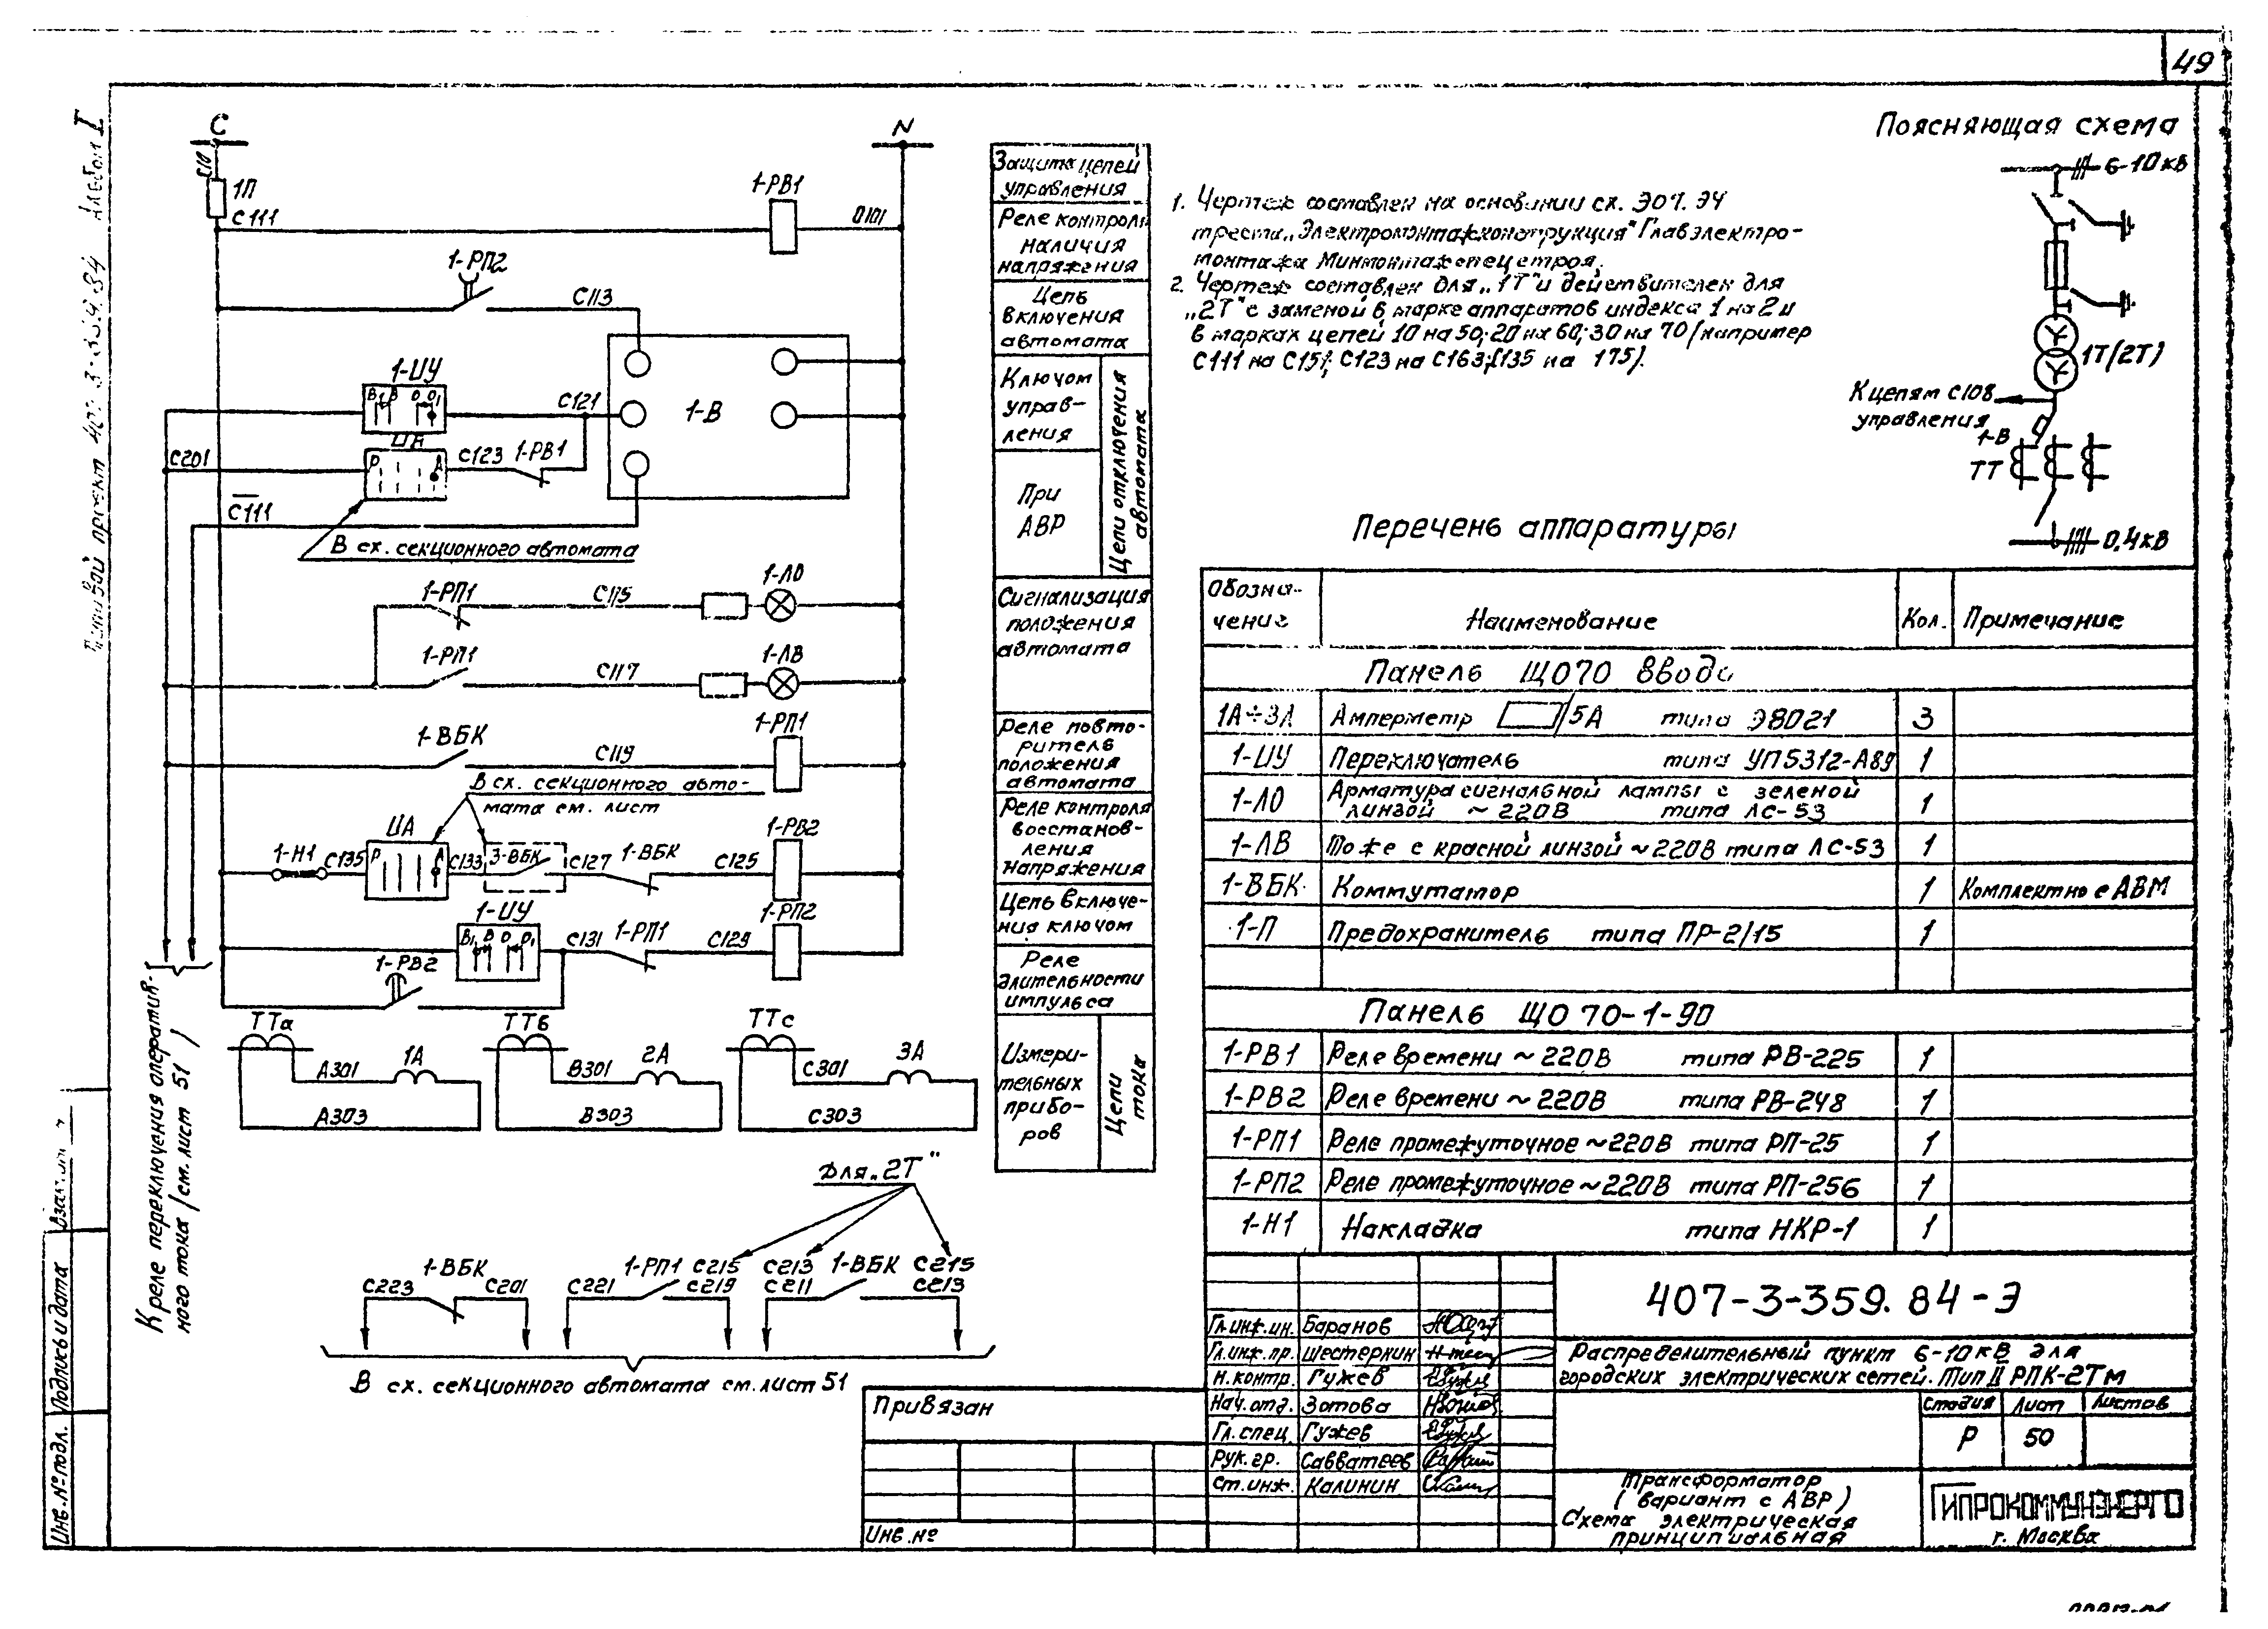 49
Альбом I
Типовой проект 407-3-359.84
С
N
С10
1П
С111
1-РВ1
0101
1-РП2
С113
1-ИУ
В1 В 0 01
С121
1-В
ИА
Р А
С123
1-РВ1
С201
С111
В сх. секционного автомата
1-РП1
С115
1-ЛО
1-РП1
С117
1-ЛВ
1-ВБК
С119
1-РП1
В сх. секционного авто-
мата см. лист
1-Н1
С135
ИА
Р А
С133
3-ВБК
С127
1-ВБК
С125
1-РВ2
1-ИУ
В1 В 0 01
С131
1-РП1
С129
1-РП2
1-РВ2
К реле переключения оператив-
ного тока (см. лист 51)
ТТа
А301
1А
А303
ТТв
В301
2А
В303
ТТс
С301
3А
С303
Для „2Т"
1-ВБК
С223
С201
1-РП1
С215
С221
С219
С213
1-ВБК
С215
С211
С213
В сх. секционного автомата см. лист 51
Защита цепей
управления
Реле контроля
наличия
напряжения
Цепь
включения
автомата
Ключом
управ-
ления
При
АВР
Цепи отключения
автомата
Сигнализация
положения
автомата
Реле повто-
ритель
положения
автомата
Реле контроля
восстанов-
ления
напряжения
Цепь включе-
ния ключом
Реле
длительности
импульса
Измери-
тельных
прибо-
ров
Цепи
тока
1. Чертеж составлен на основании сх. Э07. Э4
треста „Электромонтажконструкция" Главэлектро-
монтажа Минмонтажспецстроя.
2. Чертеж составлен для „1Т" и действителен для
„2Т" с заменой в марке аппаратов индекса 1 на 2 и
в марках цепей 10 на 50; 20 на 60; 30 на 70 (например
С111 на С151; С123 на С163; С135 на 175).
Поясняющая схема
6-10кВ
1Т(2Т)
К цепям С108
управления
1-В
ТТ
0,4кВ
Перечень аппаратуры
Обозна-
чение
Наименование
Кол.
Примечание
Панель ЩО70 ввода
1А÷3А Амперметр /5А типа Э8021 3
1-ИУ Переключатель типа УП5312-А89 1
1-ЛО Арматура сигнальной лампы с зеленой
линзой ~ 220В типа ЛС-53 1
1-ЛВ То же с красной линзой ~220В типа ЛС-53 1
1-ВБК Коммутатор 1 Комплектно с АВМ
1-П Предохранитель типа ПР-2/15 1
Панель ЩО 70-1-90
1-РВ1 Реле времени ~ 220В типа РВ-225 1
1-РВ2 Реле времени ~ 220В типа РВ-248 1
1-РП1 Реле промежуточное ~220В типа РП-25 1
1-РП2 Реле промежуточное ~220В типа РП-256 1
1-Н1 Накладка типа НКР-1 1
407-3-359.84-Э
Гл.инж.ин. Баранов
Гл.инж.пр. Шестеркин
Н.контр. Гужев
Нач.отд. Зотова
Гл.спец. Гужев
Рук.гр. Савватеев
Ст.инж. Калинин
Распределительный пункт 6-10кВ для
городских электрических сетей. Тип II РПК-2Тм
Стадия Лист Листов
Р 50
Трансформатор
(вариант с АВР)
Схема электрическая
принципиальная
ГИПРОКОММУНЭНЕРГО
г. Москва
Привязан
Инв.№
Инв.№ подл.
Подпись и дата